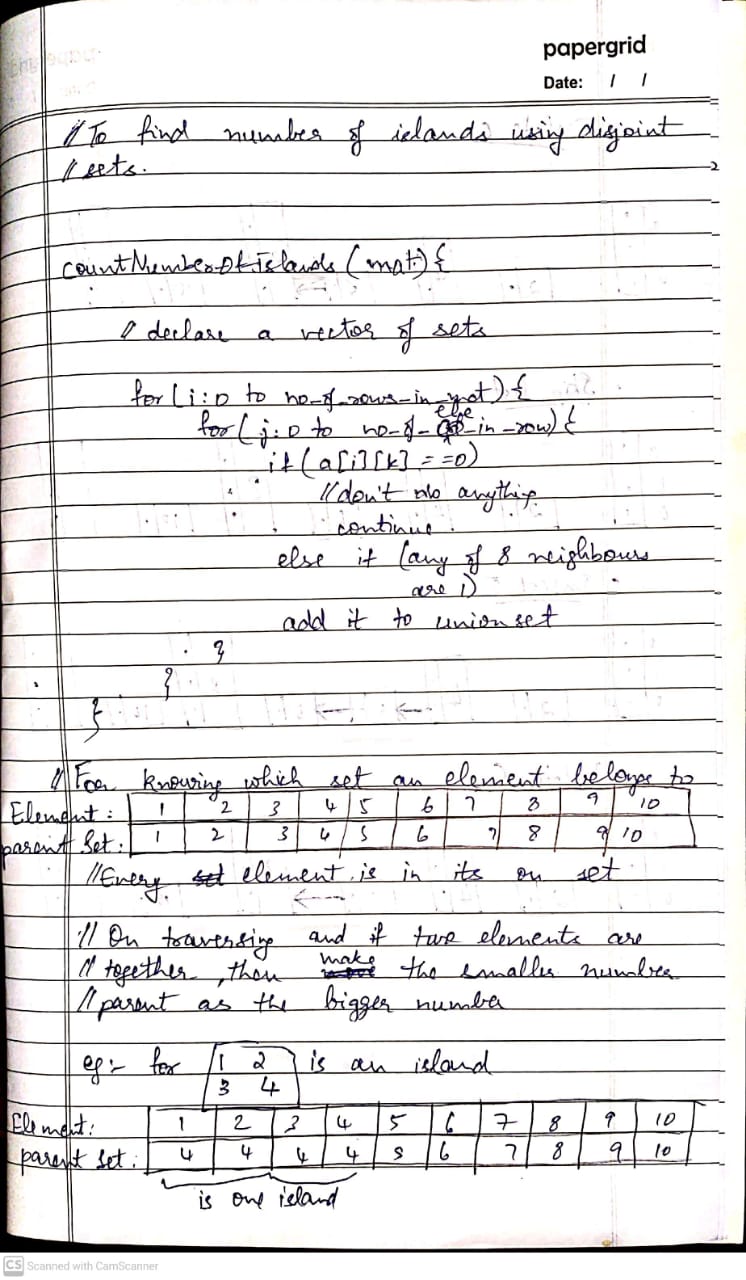 papergrid
Date: / /
// To find number of islands using disjoint
// sets.
countNumberOfIslands (mat) {
// declare a vector of sets
for (i:0 to no-of-rows-in-mat) {
for (j:0 to no-of-ele-in-row) {
if (a[i][k] == 0)
// don't do anything
continue.
else if (any of 8 neighbours
are 1)
add it to union set
}
}
}
// For knowing which set an element belongs to
Element: 1 2 3 4 5 6 7 8 9 10
parent Set: 1 2 3 4 5 6 7 8 9 10
// Every element is in its on set
// On traversing and if two elements are
// together, then make the smaller number
// parent as the bigger number
eg:- for 1 2 is an island
3 4
Element: 1 2 3 4 5 6 7 8 9 10
parent set: 4 4 4 4 5 6 7 8 9 10
is one island
CS Scanned with CamScanner